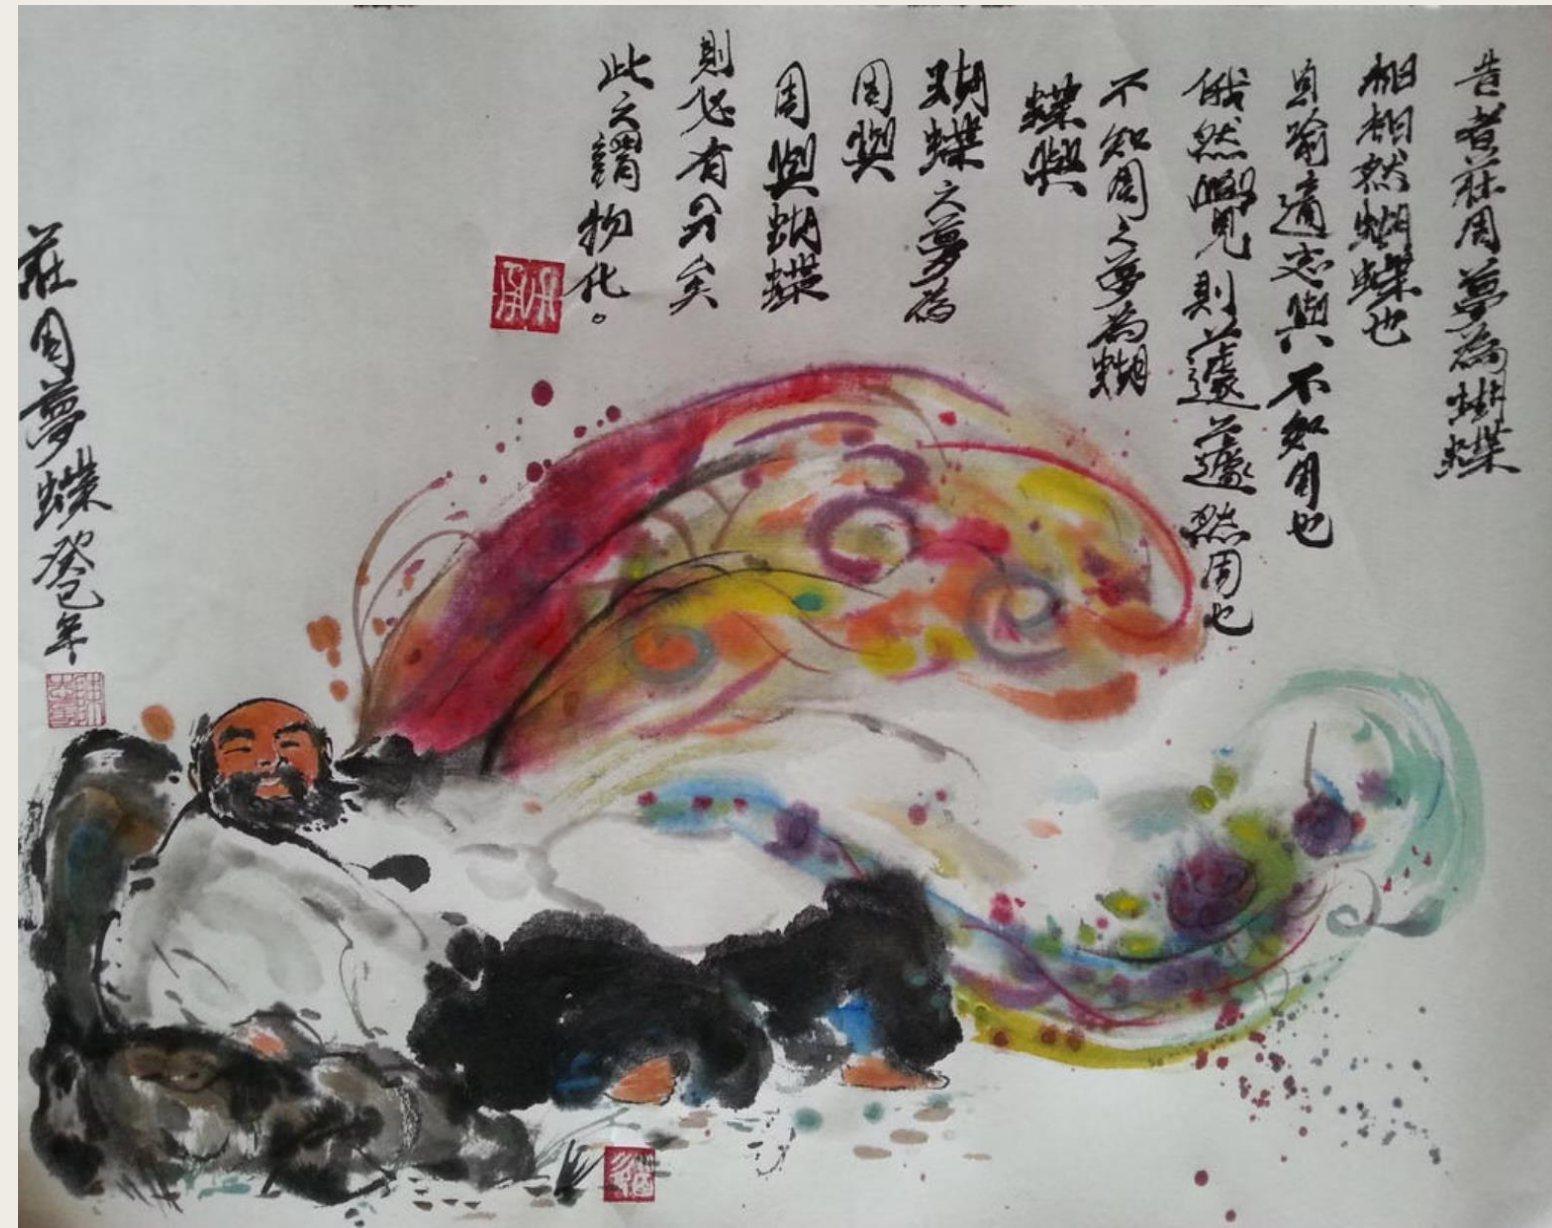 昔者莊周夢為蝴蝶
栩栩然蝴蝶也
自喻適志與不知周也
俄然覺則蘧蘧然周也
不知周之夢為蝴
蝶與
蝴蝶之夢為
周與
周與蝴蝶
則必有分矣
此之謂物化。
莊周夢蝶癸巳年